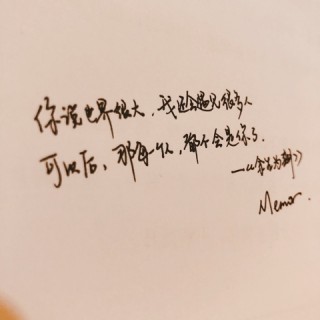 你说世界很大,我还会遇见很多人
可以后,那每一个人,都不会是你了.
——《余生为期》
Memor.